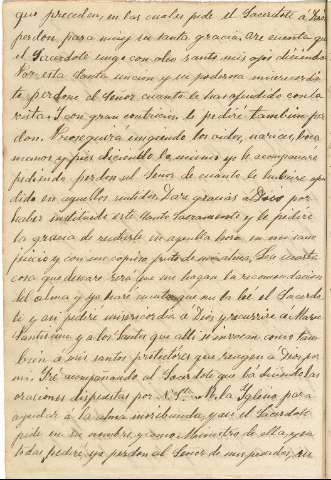 que preceden, en las cuales pide el Sacerdote á Dios
perdon para mi, y su santa gracia. Haré cuenta que
el Sacerdote unge con oleo santo mis ojos diciendo
Por esta Santa uncion y su poderosa misericordia
te perdone el Señor cuanto le has ofendido con la
vista. Y con gran contricion le pediré tambien per
don. Proseguirá ungiendo los oidos, narices, boca
manos y pies diciendo lo mismo, yo le acompañaré
pidiendo perdon al Señor de cuanto le hubiere ofen
dido en aquellos sentidos. Daré gracias a Dios por
haber instituido este Santo Sacramento y le pediré
la gracia de recibirle en aquella hora en mi sano
juicio y con un copioso fruto de mi alma. La cuarta
cosa que desearé será que me hagan la recomendacion
del alma y yo haré cuenta que me la lée el Sacerdo
te y asi pediré misericordia á Dios y recurriré a Maria
Santisima y a los Santos que alli se invocan como tam
bien á mis santos protectores que rueguen a Dios por
mi. Iré acompañando al Sacerdote que vá diciendo las
oraciones dispuestas por N. Sta. M. la Iglesia para
ayudar á la alma moribunda, y asi el Sacerdote
pide en su nombre, y como Ministro de ella, y en
todas pediré yo perdon al Señor de mis pecados,